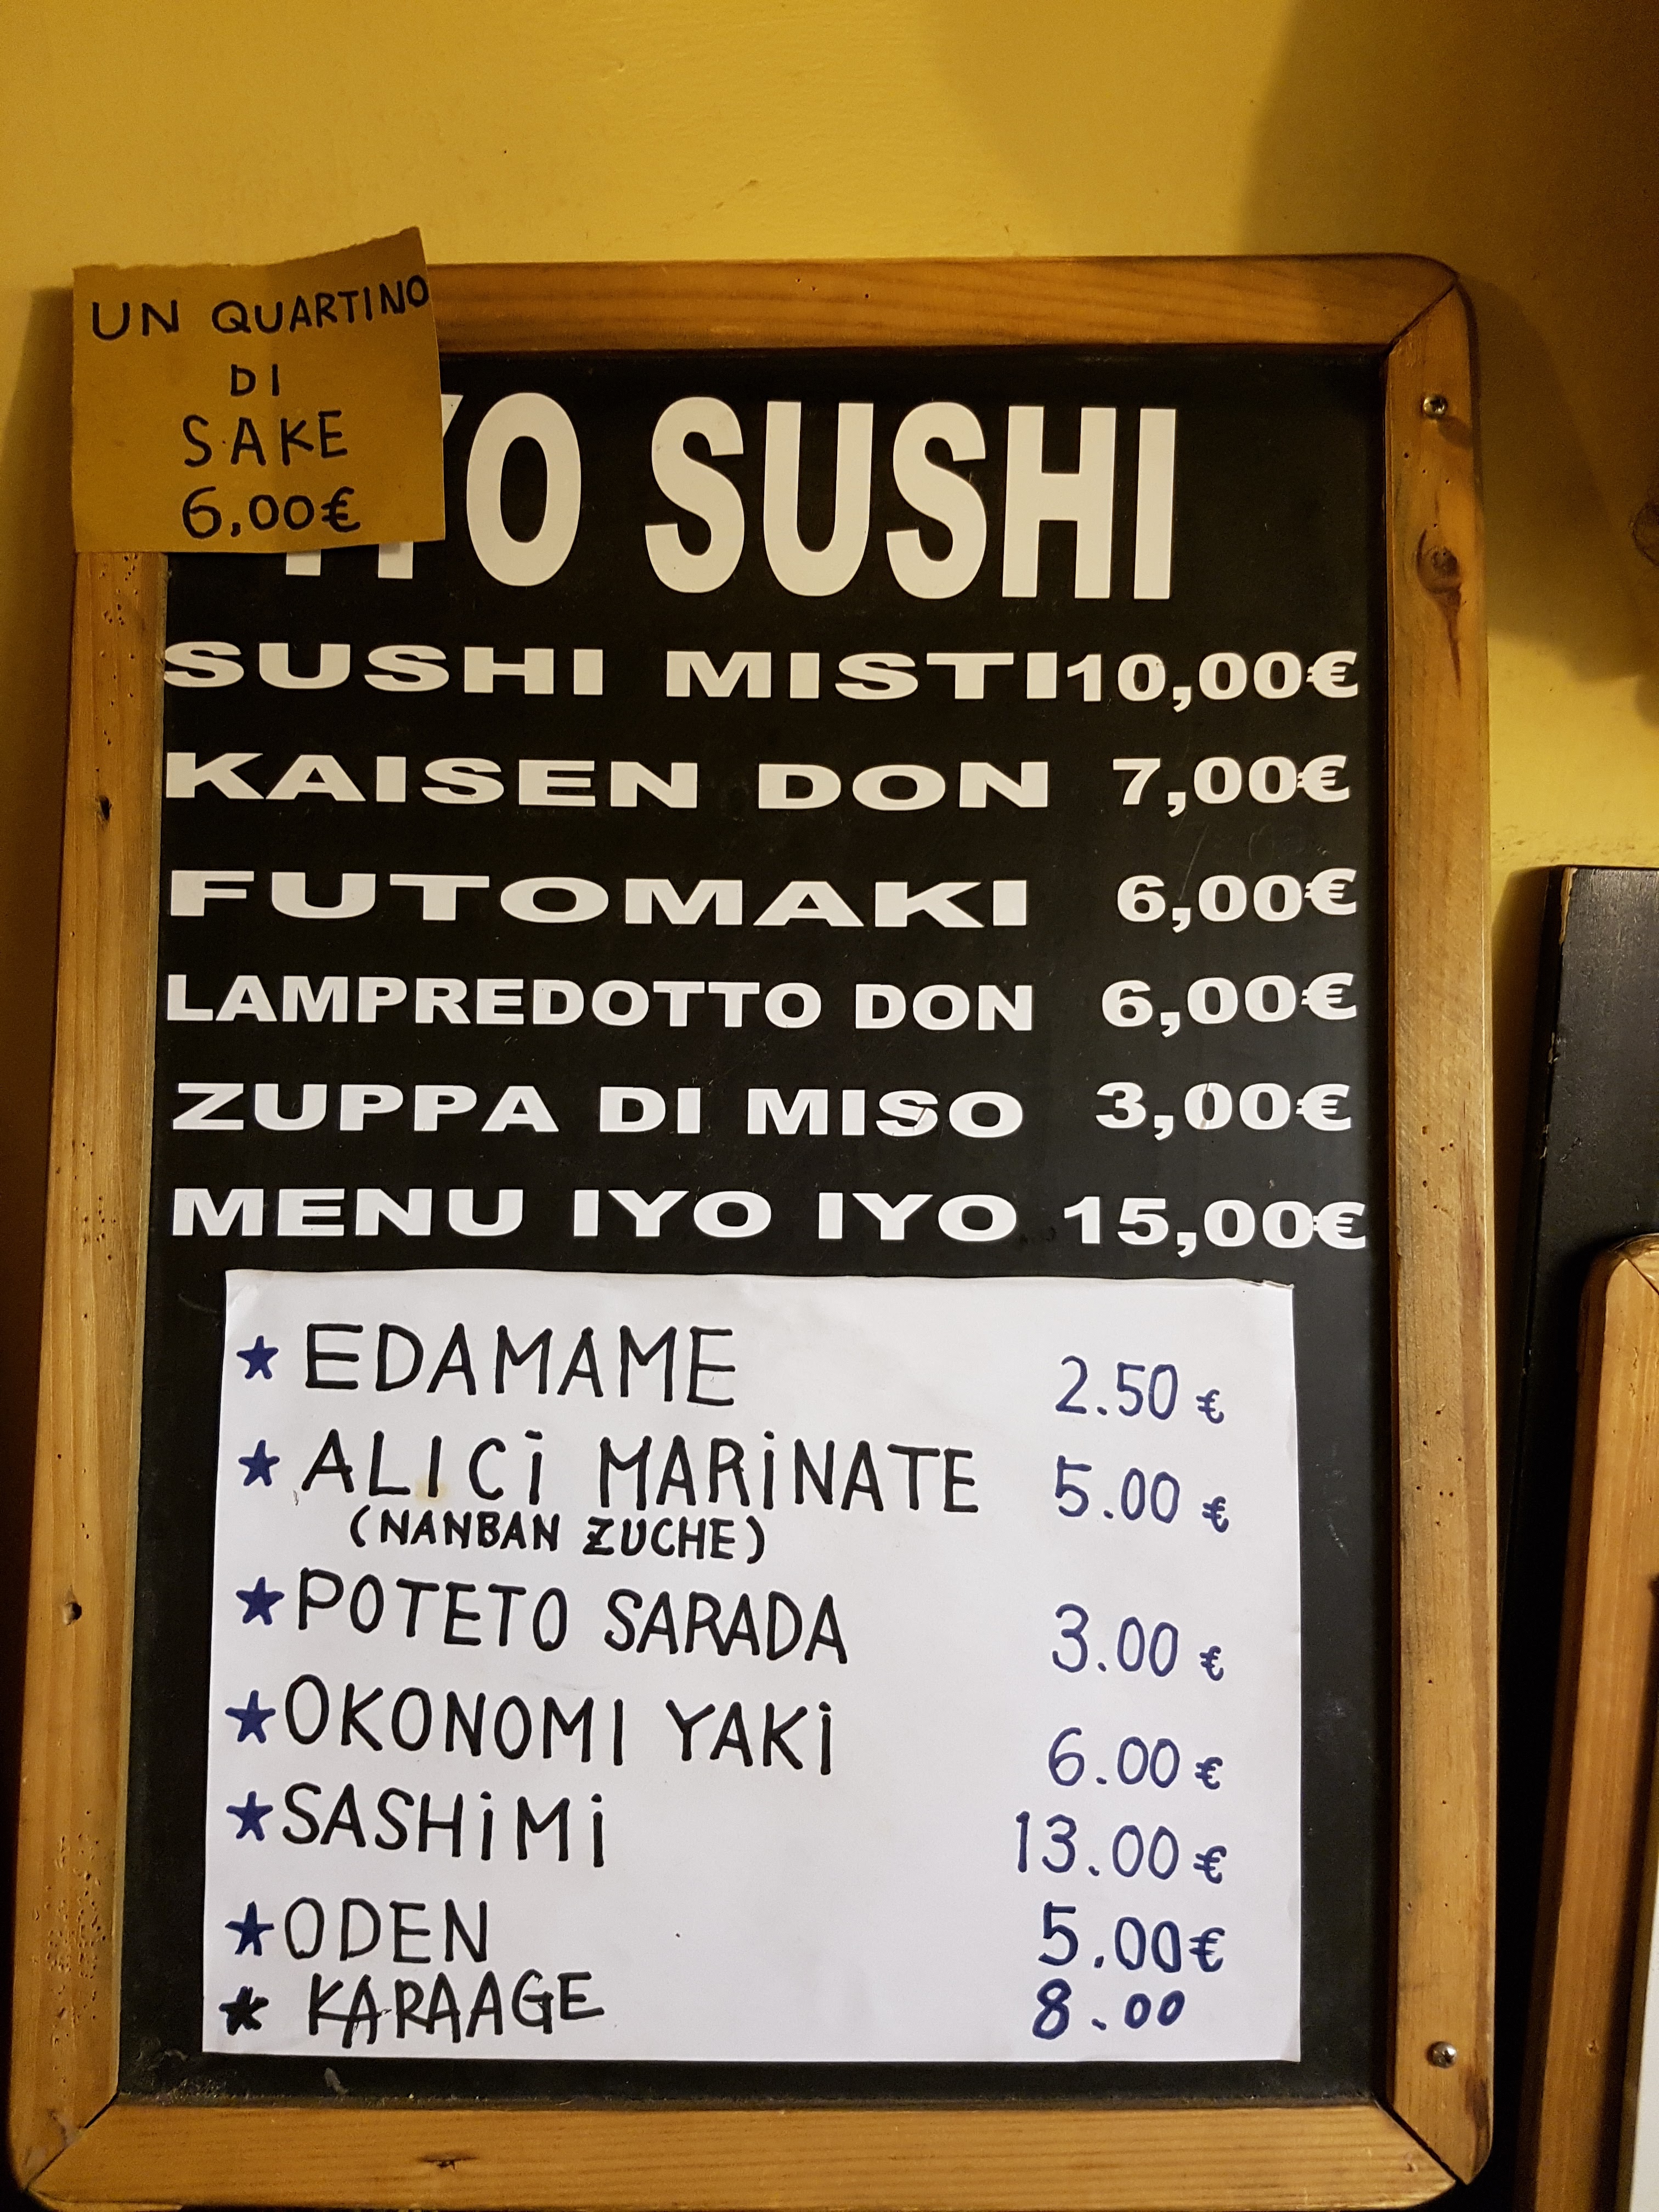 UN QUARTINO
DI
SAKE
6,00€
YO SUSHI
SUSHI MISTI 10,00€
KAISEN DON 7,00€
FUTOMAKI 6,00€
LAMPREDOTTO DON 6,00€
ZUPPA DI MISO 3,00€
MENU IYO IYO 15,00€
★ EDAMAME 2.50 €
★ ALICI MARINATE 5.00 €
(NANBAN ZUCHE)
★ POTETO SARADA 3.00 €
★ OKONOMI YAKI 6.00 €
★ SASHIMI 13.00 €
★ ODEN 5.00 €
★ KARAAGE 8.00